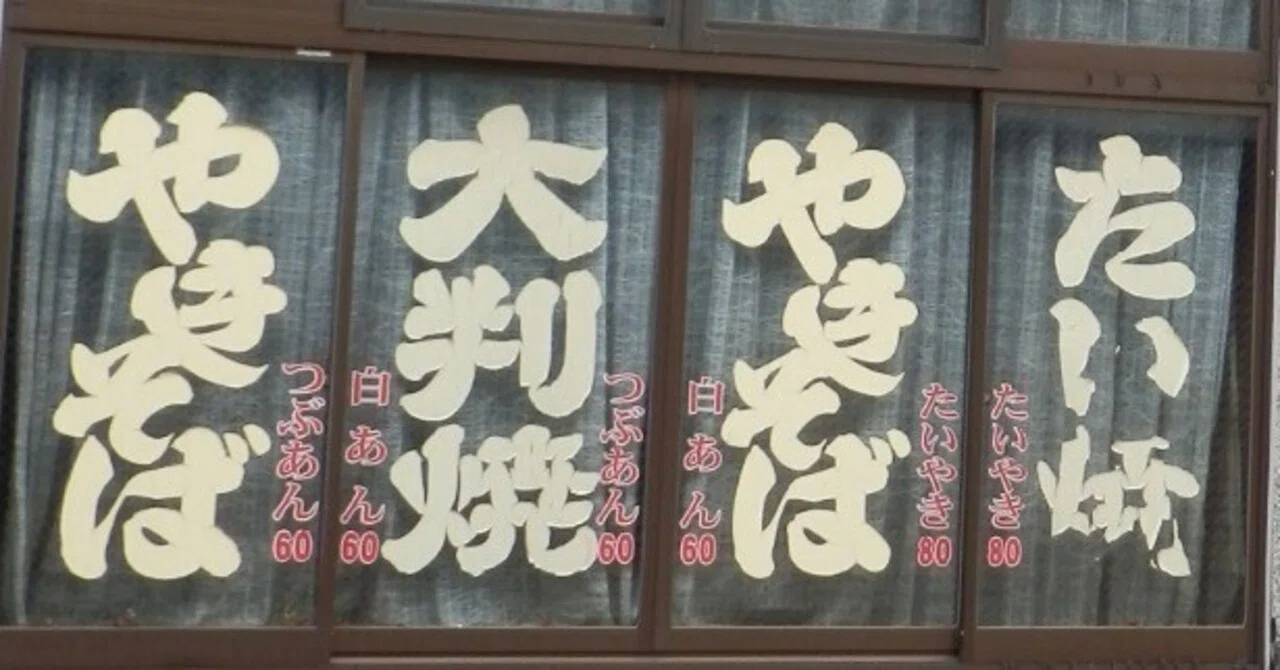 やきそば
つぶあん60
白あん60
大判焼
つぶあん60
白あん60
やきそば
たいやき80
たいやき80
たい焼